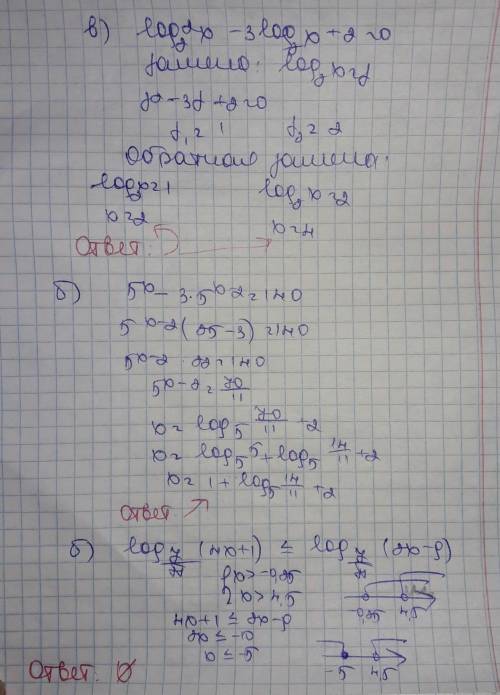 в) log₂²x - 3log₂x + 2 = 0
замена: log₂x = y
y² - 3y + 2 = 0
y₁ = 1 y₂ = 2
Обратная замена:
log₂x = 1 log₂x = 2
x = 2 x = 4
Ответ:
б) 5ˣ - 3·5ˣ⁻² = 140
5ˣ⁻²(25-3) = 140
5ˣ⁻² · 22 = 140
5ˣ⁻² = 70/11
x = log₅ 70/11 + 2
x = log₅5 + log₅ 14/11 + 2
x = 1 + log₅ 14/11 + 2
Ответ
б) log (4x+1) ≤ log (2x-9)
{x > -0,25
x > 4,5
-0,25 4,5
4x+1 ≤ 2x-9
2x ≤ -10
x ≤ -5
-5 4,5
Ответ: ∅